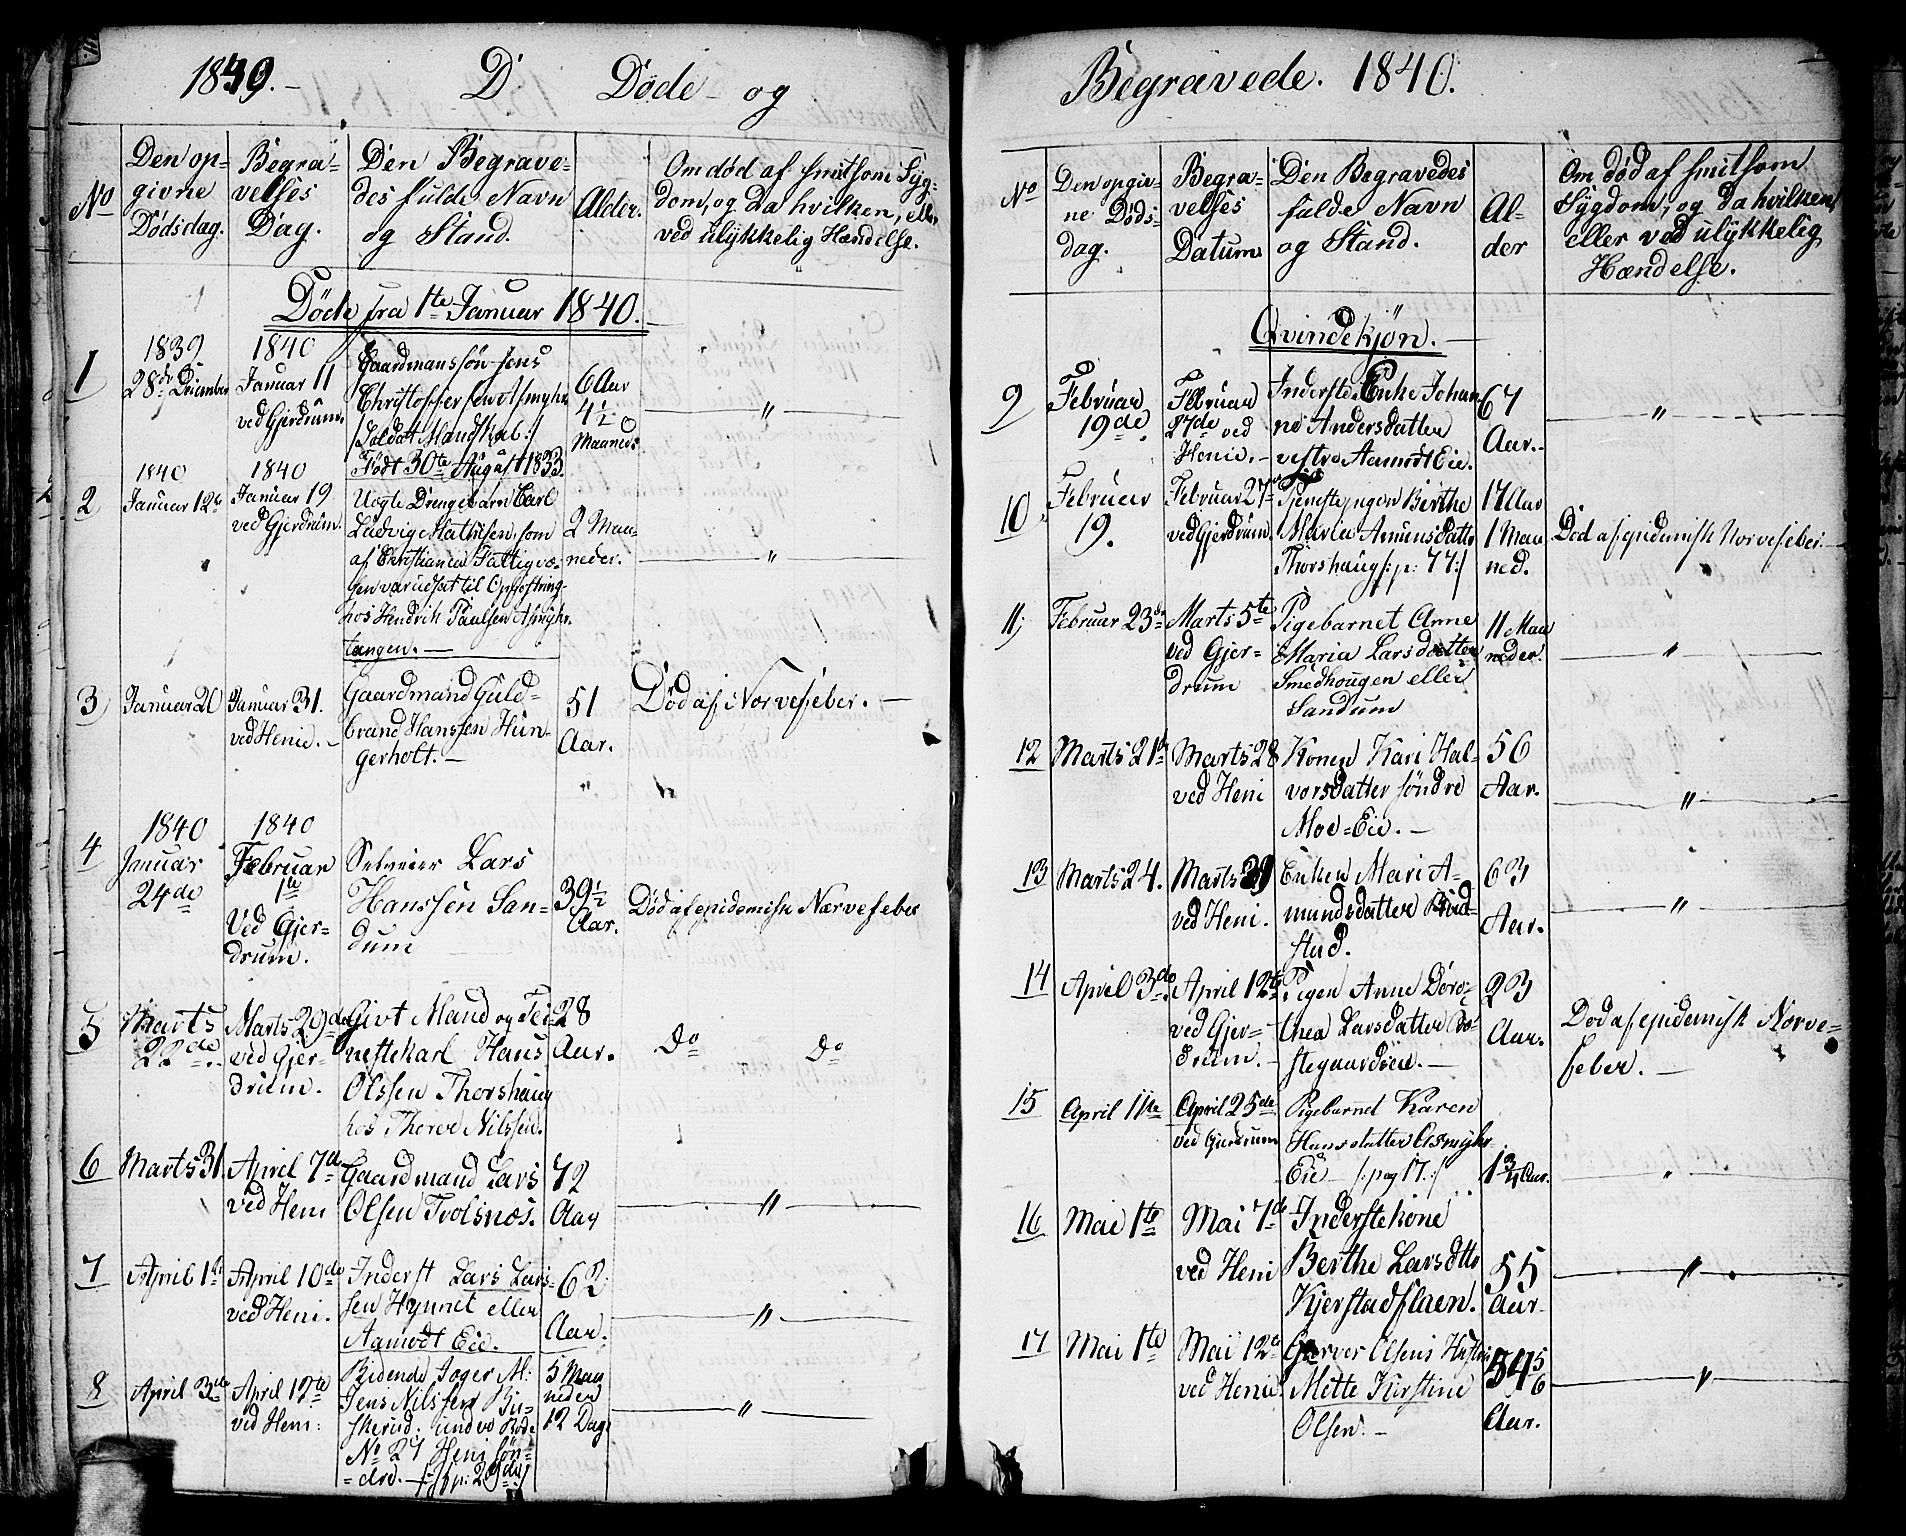 1839.- D Døde og
No
Den op-
givne
Dødsdag.
Begra-
velses
Dag.
Den Begrave-
des fulde Navn
og Stand.
Alder.
Om død af smitsom Syg-
dom, og da hvilken, eller
ved ulykkelig Hændelse.
Døde fra 1te Januar 1840.
1
1839
28de December
1840
Januar 11
ved Gjerdrum.
Gaardmanssøn Jens
Christoffersen Asmyhr
/Soldat Mandskab:/
Født 30te August 1833.
6 Aar
4½
Maaneds
"
2
1840
Januar 12te
1840
Januar 19
ved Gjerdrum.
Uegte Drengebarn Carl
Ludvig Mathisen, som
af Christiania Fattigvæ-
sen var udsat til Opfostring
hos Hendrik Paulsen Asmyhr-
tangen. -
2 Maa-
neder.
"
3
Januar 20
Januar 31.
ved Henie. -
Gaardmand Guld-
brand Hanssen Hun-
gerholt. -
51
Aar.
Død af Nervefeber. -
4
1840
Januar
24de
1840
Februar
1te
Ved Gjer-
drum.
Selveier Lars
Hanssen San-
dum
39½
Aar.
Død af epidemisk Nervefeber
5
Marts
22de
Marts 29de
ved Gjer-
drum.
Givt Mand og Tje-
nestekarl Hans
Olssen Thorshaug
hos Thorer Nilssen.
28
Aar.
Do Do
6
Marts 31
April 7de
ved Heni
Gaardmand Lars
Olsen Tvolsnæs.
72
Aar
"
7
April 1te
April 10de
ved Heni.
Inderst Lars Lars-
sen Hynnet eller
Aamodt Eie.
62
Aar.
"
8
April 3de
April 12te
ved Heni:
Ridende Jæger M:
Jens Nilssen Bu-
skerud: under Rode
No 27 Heni søn-
dre. -
5 Maa
neder
12 Dage
"
Begravede. 1840.
No
Den opgiv-
ne Døds-
dag.
Begra-
velses
Datum
Den Begravedes
fulde Navn
og Stand.
Al-
der
Om død af smitsom
Sygdom, og da hvilken,
eller ved ulykkelig
Hændelse.
Qvindekjøn. -
9
Februar
19de
Februar
27de ved
Henie. -
Inderste Enke Johan
ne Andersdatter
vestre Aamodt Eie.
67
Aar. -
"
10
Februar
19.
Februar 27de
ved Gjerdrum
Tjenestepigen Berthe
Maria Amunsdatter
Thorshaug /:p: 77:/
17 Aar
1 Maa
ned.
Død af epidemisk Nervefeber. -
11
Februar 23de
Marts 5te
ved Gjer-
drum
Pigebarnet Anne
Maria Larsdatter
Smedhougen eller
Sandum
11 Maa
neder.
"
12
Marts 21de
Marts 28
ved Heni
Konen Kari Hal-
vorsdatter søndre
Moe-Eie. -
56
Aar.
"
13
Marts 24.
Marts 29
ved Heni.
Enken Mari A-
mundsdatter Rud-
stad.
63
Aar.
"
14
April 3de
April 12te
ved Gjer-
drum. -
Pigen Anne Doro-
thea Larsdatter
stegaardseie. -
23
Aar.
Død af epidemisk Nerve-
feber. -
15
April 11te
April 25de
ved Gjerdrum
Pigebarnet Karen
Hansdatter Asmyhr
Eie /:pag 17:/
1¾ Aar.
"
16
Mai 1te
Mai 7de
ved Heni
Inderstekone
Berthe Larsdttr
Kjerstadflaen.
55
Aar
"
17
Mai 1te
Mai 12te
ved Henie
Garver Olsens Hustru
Mette Kirstine
Olsen. -
54 5/6
Aar.
"